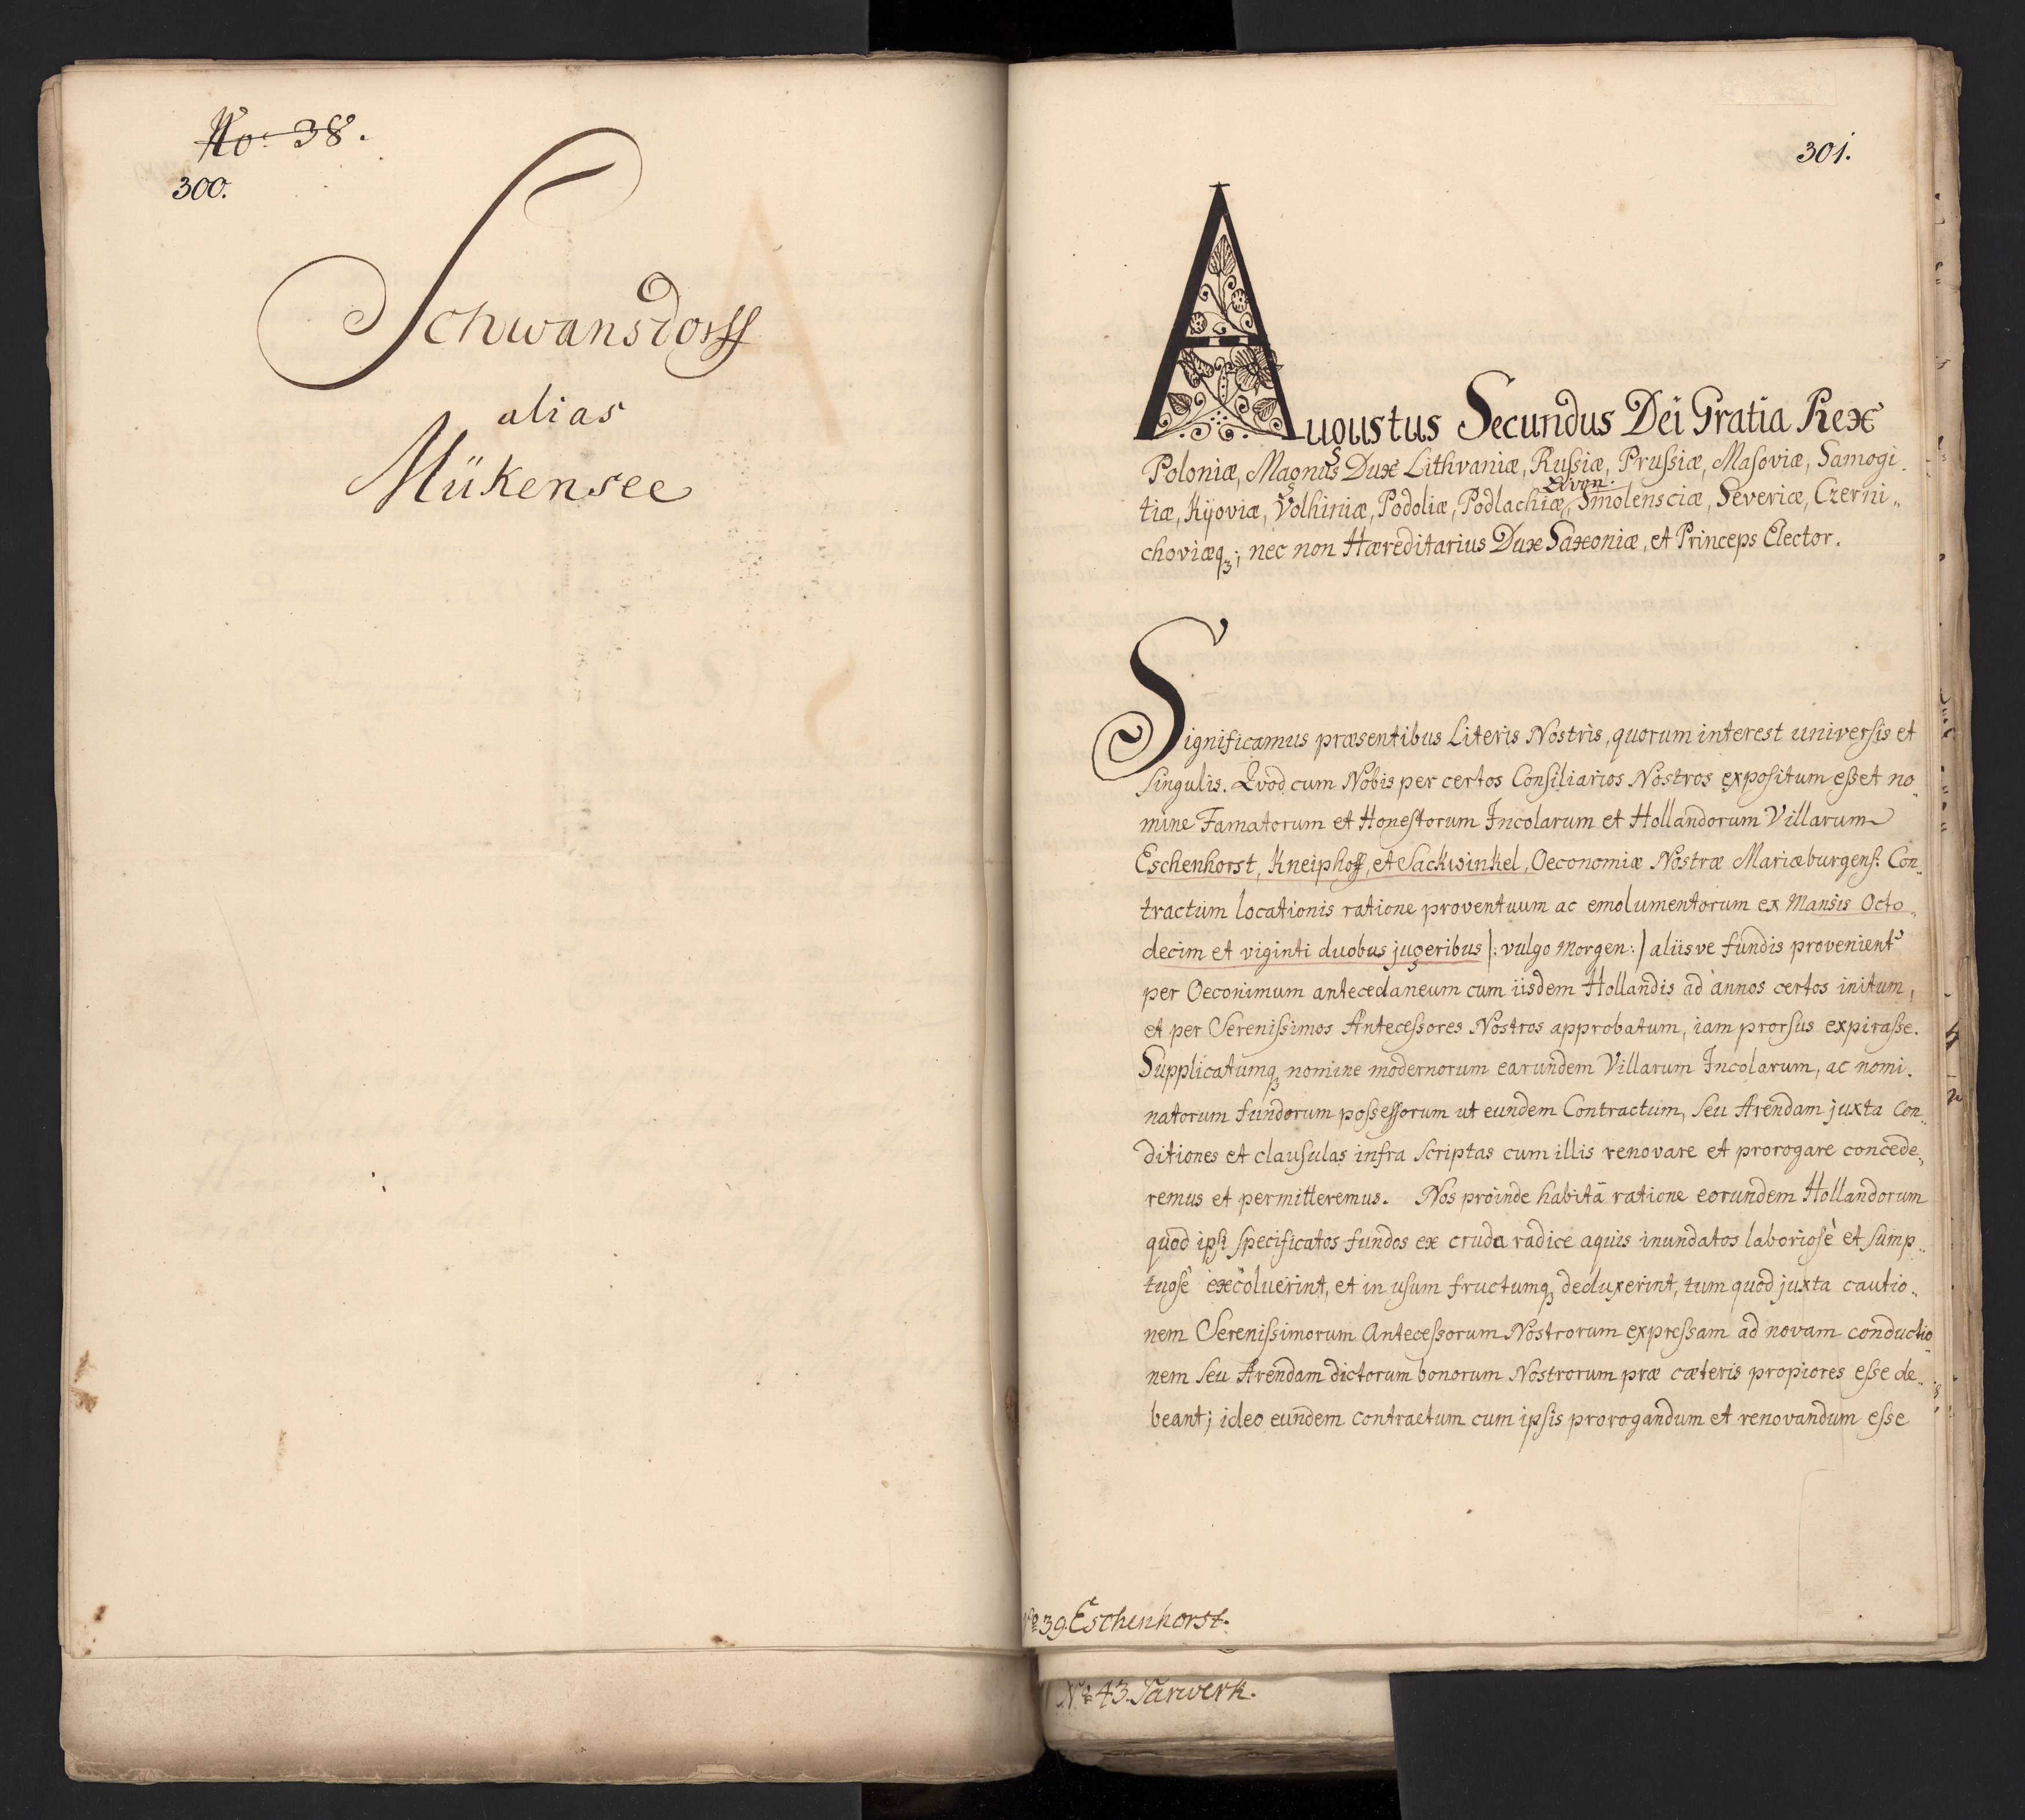 No. 38.
300.
Schwansdorff
alias
Mükensee
301.
Augustus Secundus Dei Gratia Rex
Poloniæ, Magnus Dux Lithvaniæ, Rußiæ, Prußiæ, Masoviæ, Samogi
tiæ, Kÿoviæ, Volhiniæ, Podoliæ, Podlachiæ, Livon. Smolensciæ, Severiæ, Czerni„
choviæq3; nec non Hæreditarius Dux Saxoniæ, et Princeps Elector.
Significamus præsentibus Literis Nostris, quorum interest universis et
singulis. Qvod cum Nobis per certos Consiliarios Nostros expositum eßet no„
mine Famatorum et Honestorum Incolarum et Hollandorum Villarum
Eschenhorst, Kneiphoff, et Sackwinkel, Oeconomiæ Nostræ Mariæburgens: Con„
tractum locationis ratione proventuum ac emolumentorum ex Mansis Octo„
decim et viginti duobus jugeribus |: vulgo Morgen :| aliisve fundis provenient
per Oeconimum antecedaneum cum iisdem Hollandis ad annos certos initum,
et per Serenißimos Anteceßores Nostros approbatum, iam prorsus expiraße.
Supplicatumq3 nomine modernorum earundem Villarum Incolarum, ac nomi.
natorum fundorum poßeßorum ut eundem Contractum, seu Arendam juxta Con„
ditiones et clausulas infra scriptas cum illis renovare et prorogare concede„
remus et permitteremus. Nos proinde habitâ ratione eorundem Hollandorum
quod ipsi specificatos fundos ex cruda radice aquis inundatos laboriosè et sump„
tuosè excoluerint, et in usum fructumq3 deduxerint, tum quod juxta cautio„
nem Serenißimorum Anteceßorum Nostrorum expreßam ad novam conductio„
nem seu Arendam dictorum bonorum Nostrorum præ cæteris propiores eße de„
beant; ideo eundem contractum cum ipsis prorogandum et renovandum esse
No 39. Eschenhorst.
No 43. Parwerk.